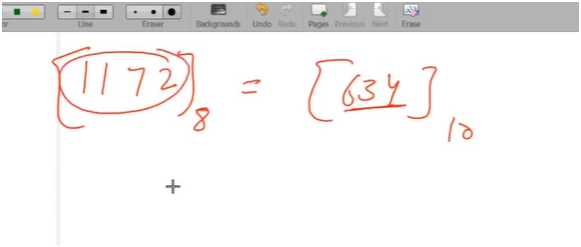 or Line Eraser Backgrounds Undo Redo Pages Previous Next Erase
[1172]8 = [634]10